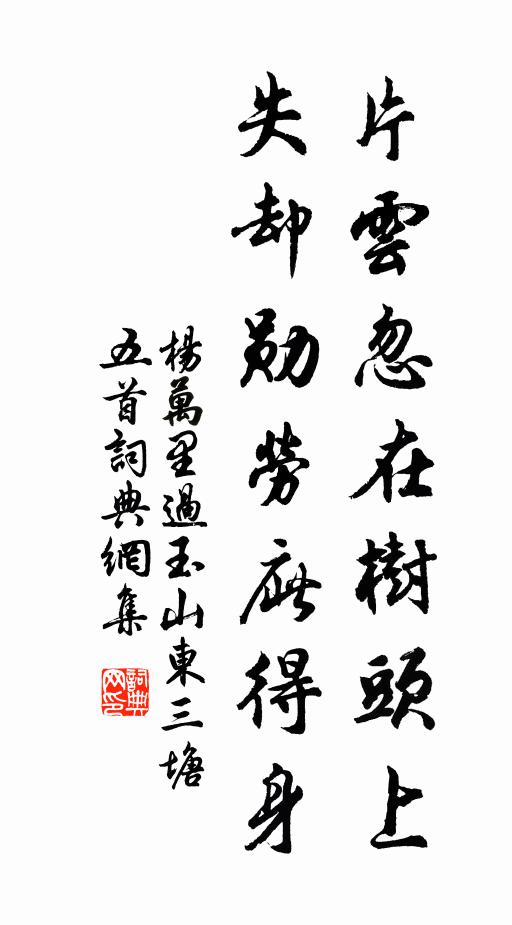 片雲忽在樹頭上
失却勛勞庇得身
楊萬里過玉山東三塘
五首詞典網集
詞典
网印